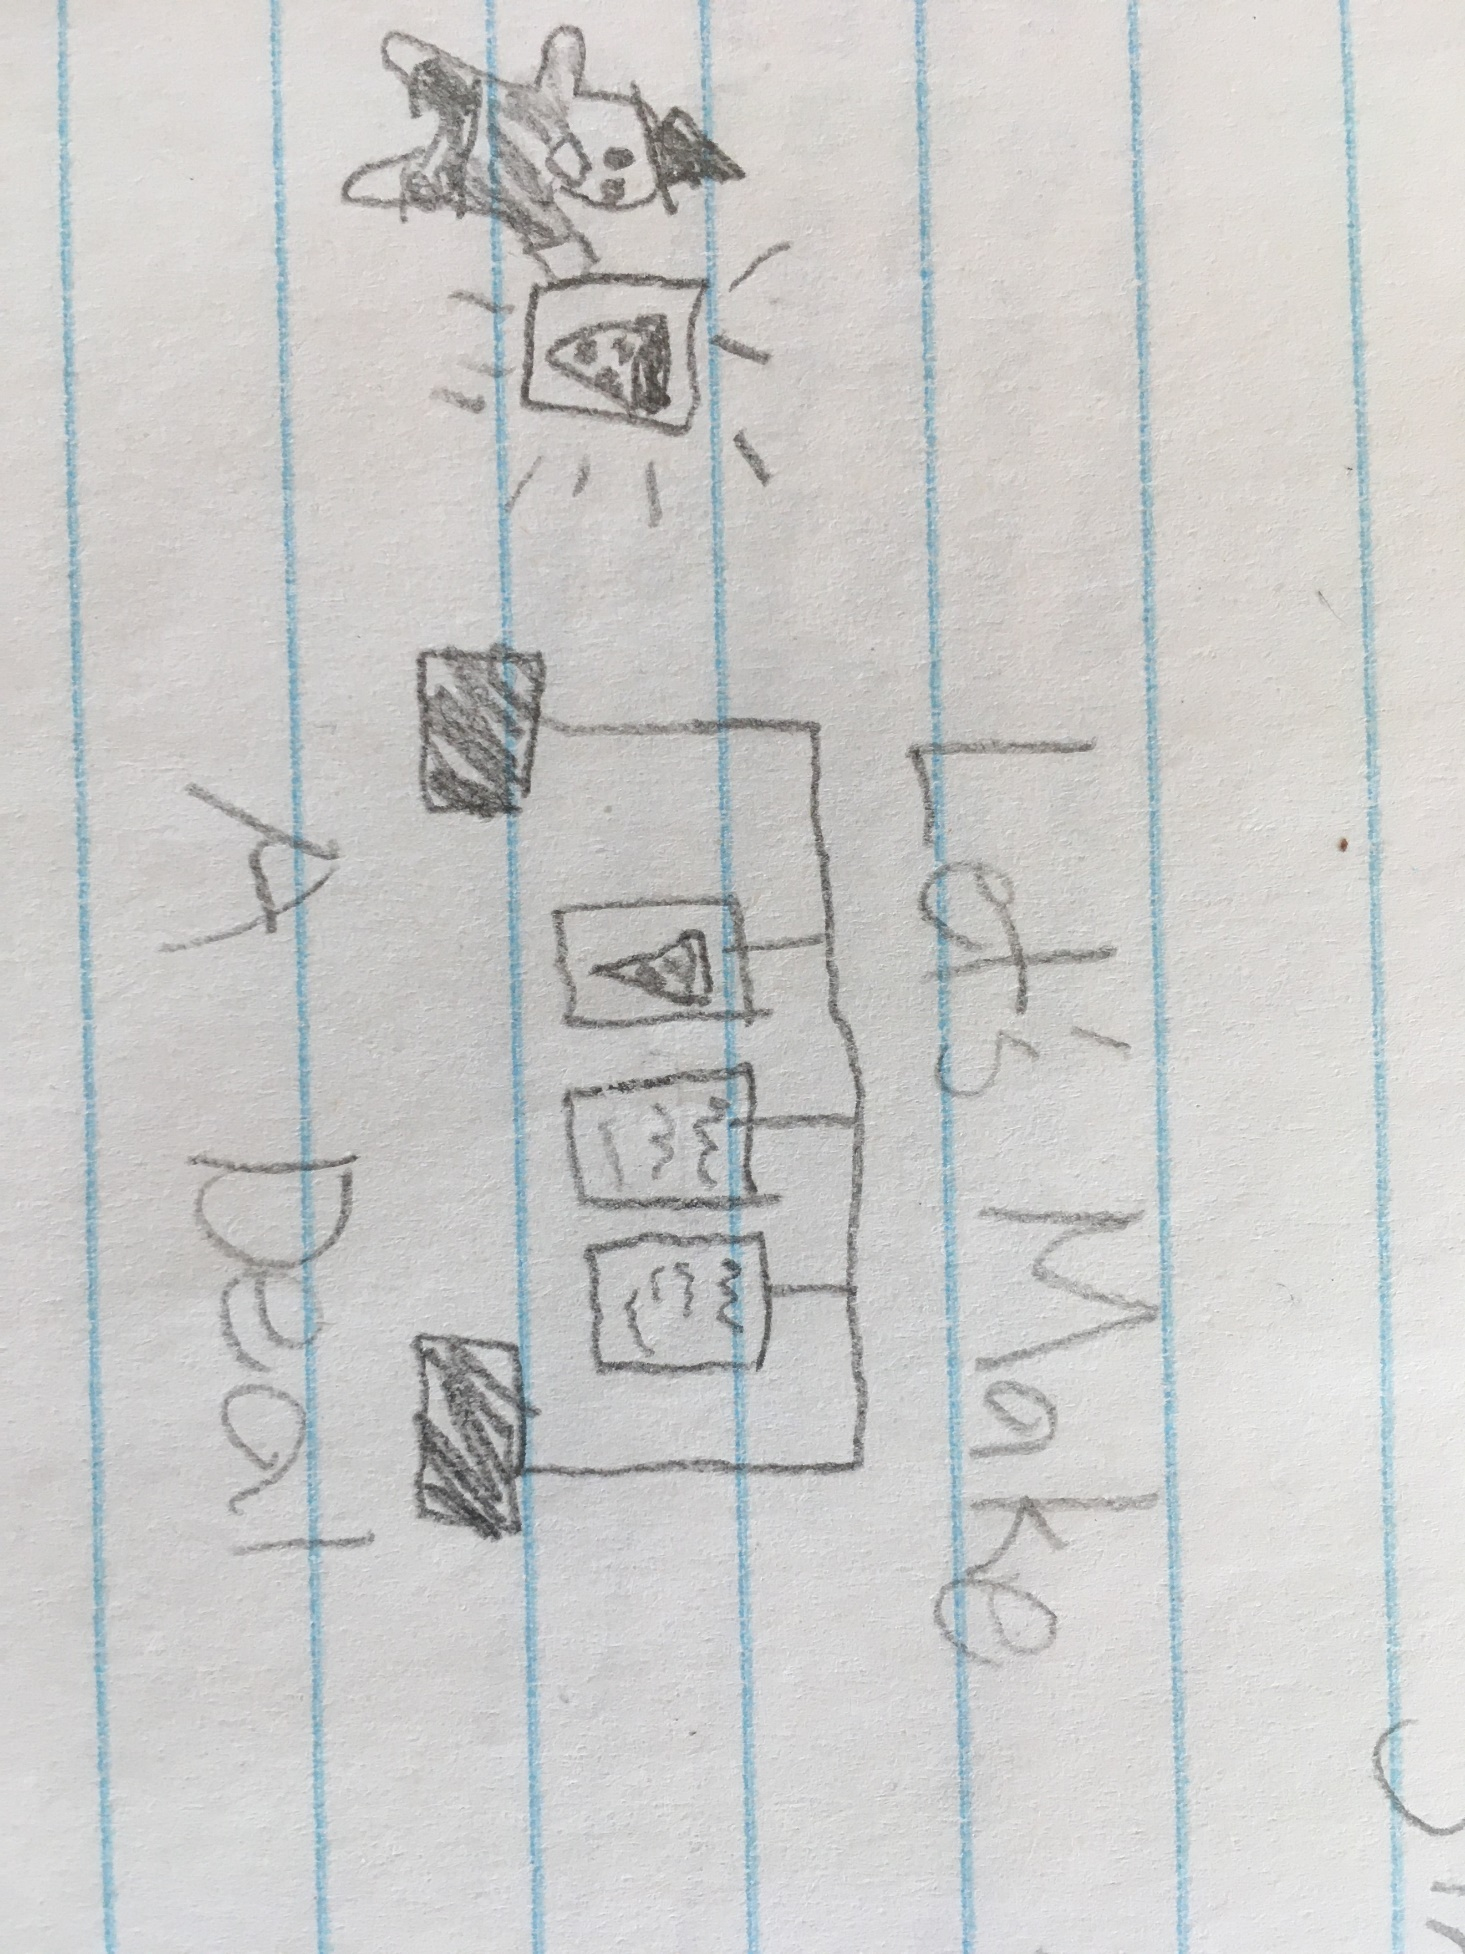 Let's Make
A Deal